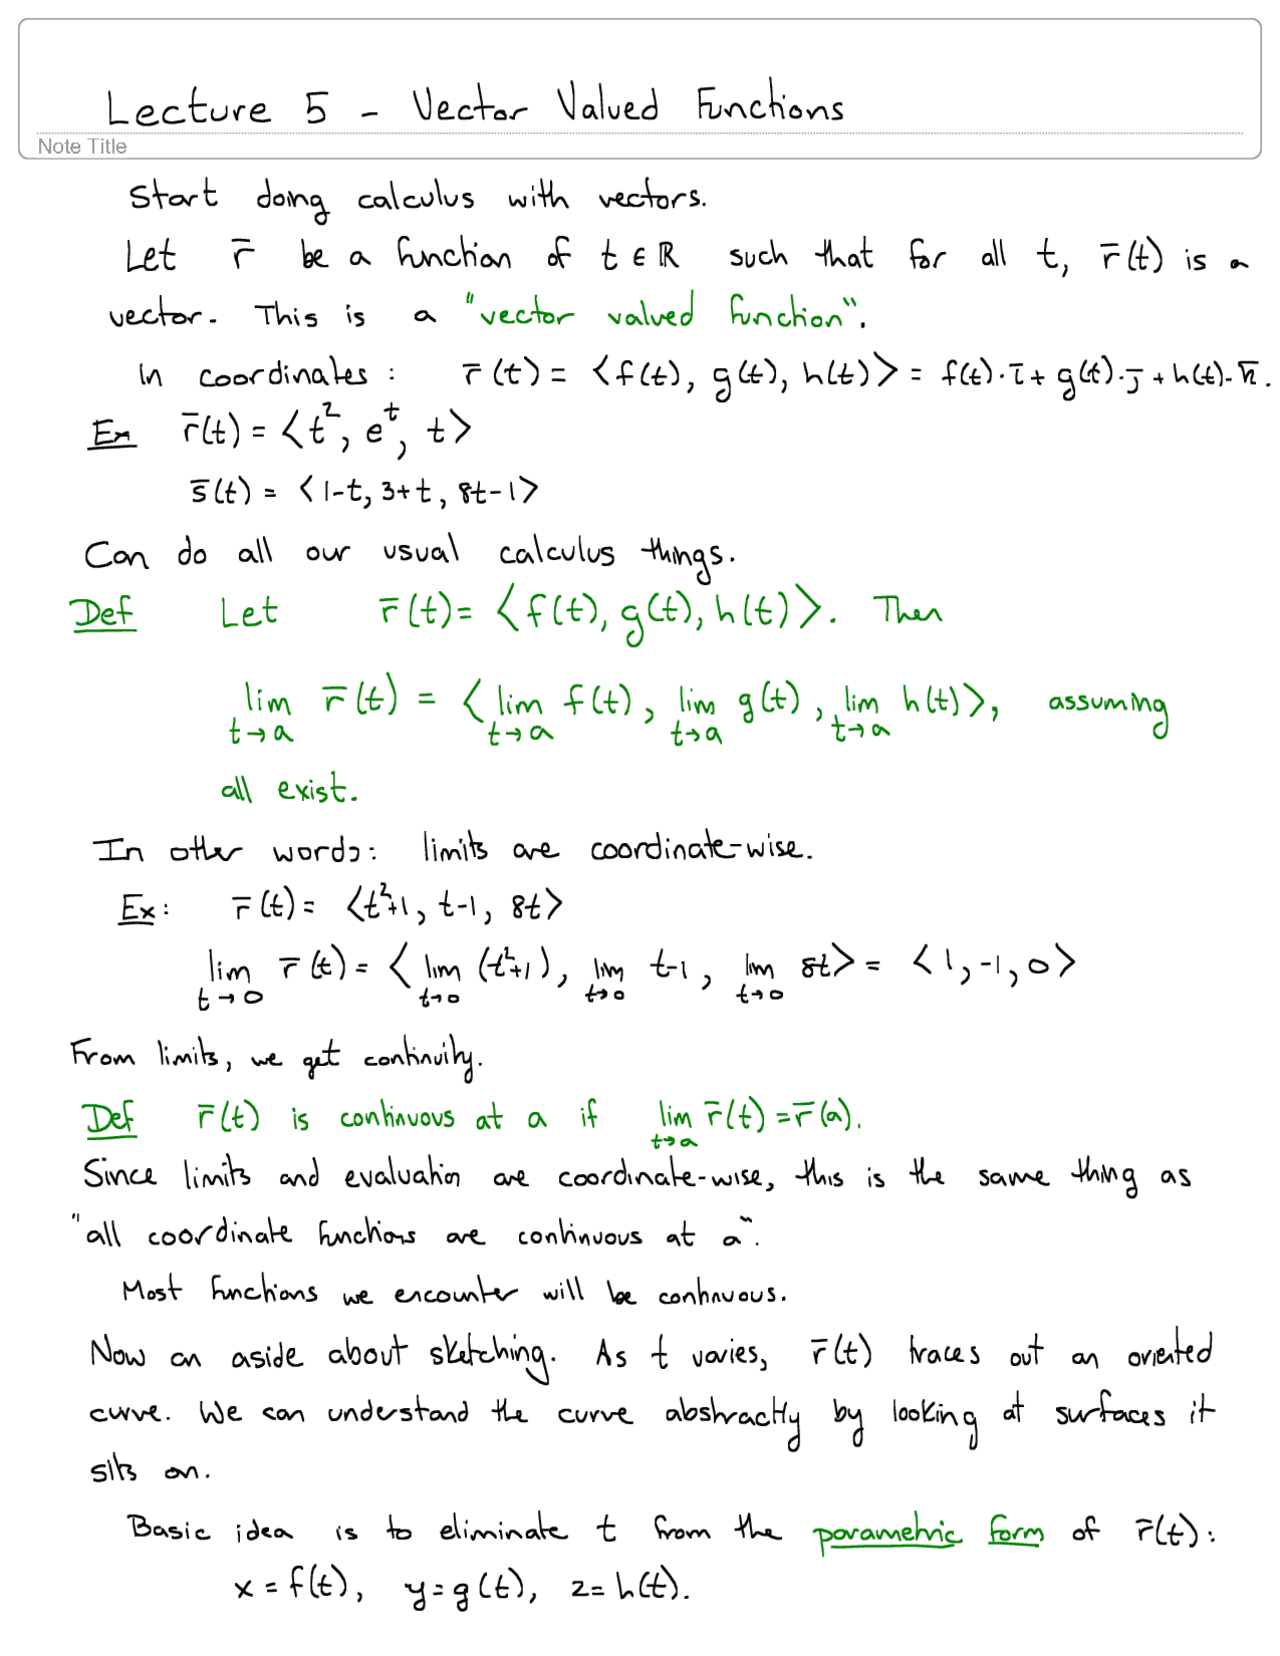 Lecture 5 - Vector Valued Functions
Note Title
Start doing calculus with vectors.
Let r̄ be a function of t ∈ ℝ such that for all t, r̄(t) is a
vector. This is a "vector valued function".
In coordinates: r̄(t) = ⟨f(t), g(t), h(t)⟩ = f(t)·ī + g(t)·j̄ + h(t)·k̄.
Ex r̄(t) = ⟨t², eᵗ, t⟩
s̄(t) = ⟨1-t, 3+t, 8t-1⟩
Can do all our usual calculus things.
Def Let r̄(t) = ⟨f(t), g(t), h(t)⟩. Then
lim r̄(t) = ⟨lim f(t), lim g(t), lim h(t)⟩, assuming
t→a t→a t→a t→a
all exist.
In other words: limits are coordinate-wise.
Ex: r̄(t) = ⟨t²+1, t-1, 8t⟩
lim r̄(t) = ⟨lim (t²+1), lim t-1, lim 8t⟩ = ⟨1, -1, 0⟩
t→0 t→0 t→0 t→0
From limits, we get continuity.
Def r̄(t) is continuous at a if lim r̄(t) = r̄(a).
t→a
Since limits and evaluation are coordinate-wise, this is the same thing as
"all coordinate functions are continuous at a".
Most functions we encounter will be continuous.
Now an aside about sketching. As t varies, r̄(t) traces out an oriented
curve. We can understand the curve abstractly by looking at surfaces it
sits on.
Basic idea is to eliminate t from the parametric form of r̄(t):
x = f(t), y = g(t), z = h(t).